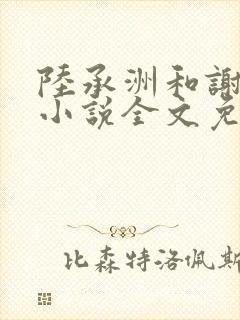 陸承洲和謝
小說全文免
比森特洛佩斯